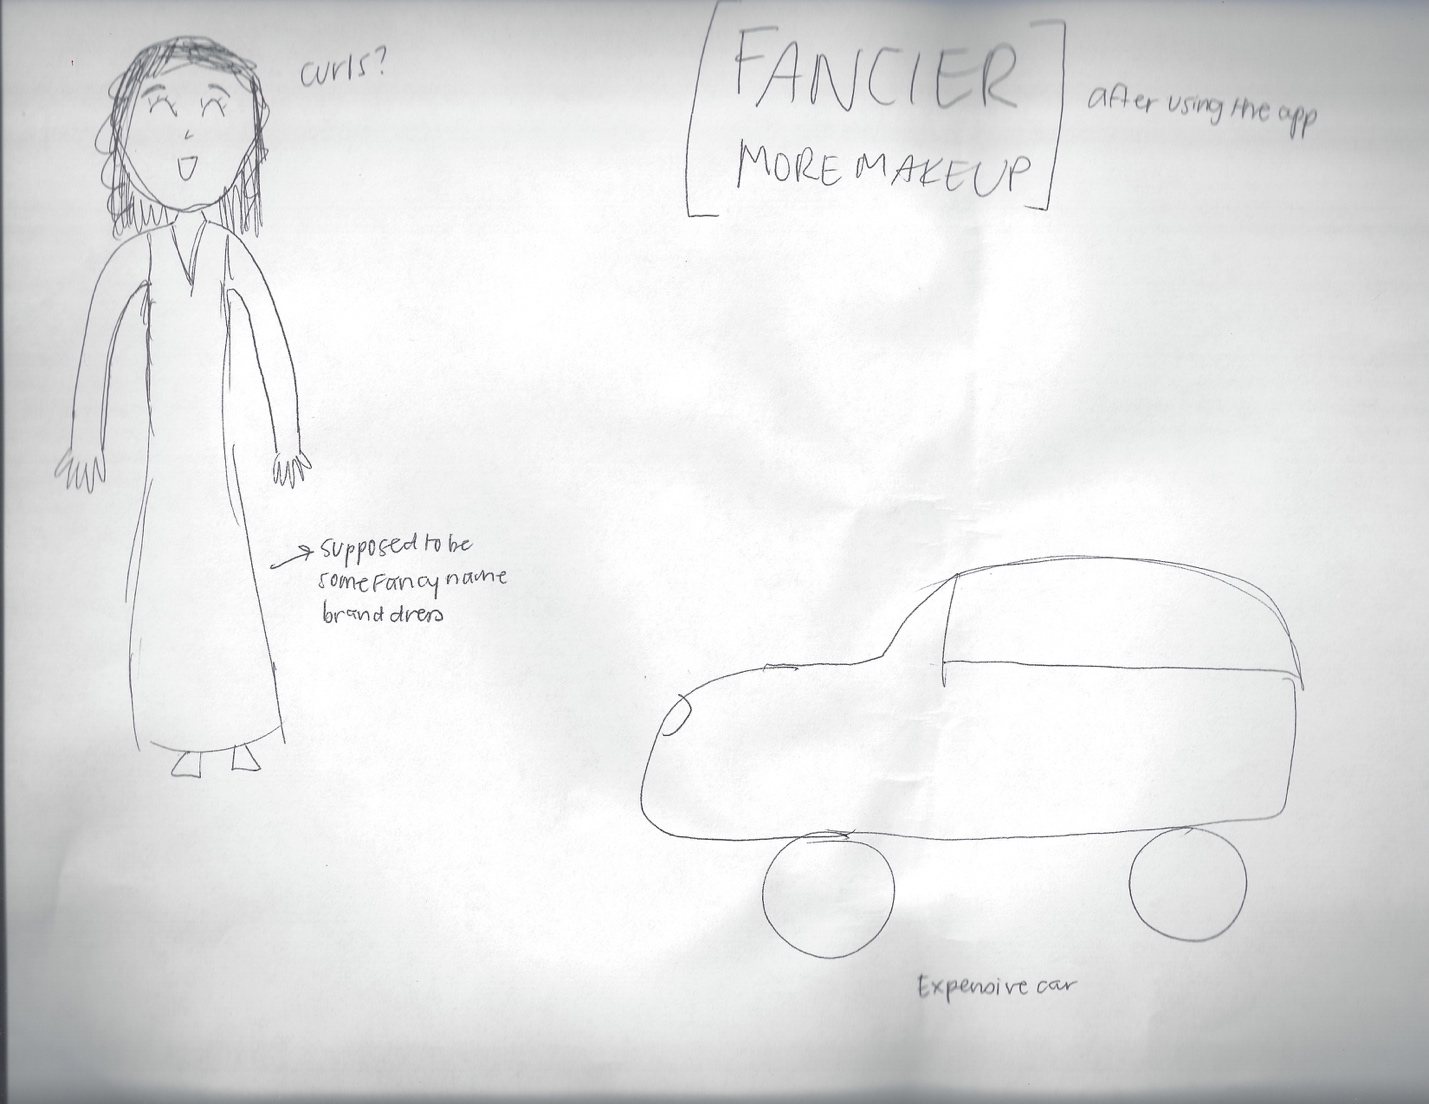 curls?
FANCIER
MORE MAKEUP
after using the app
supposed to be
some fancy name
brand dress
Expensive car